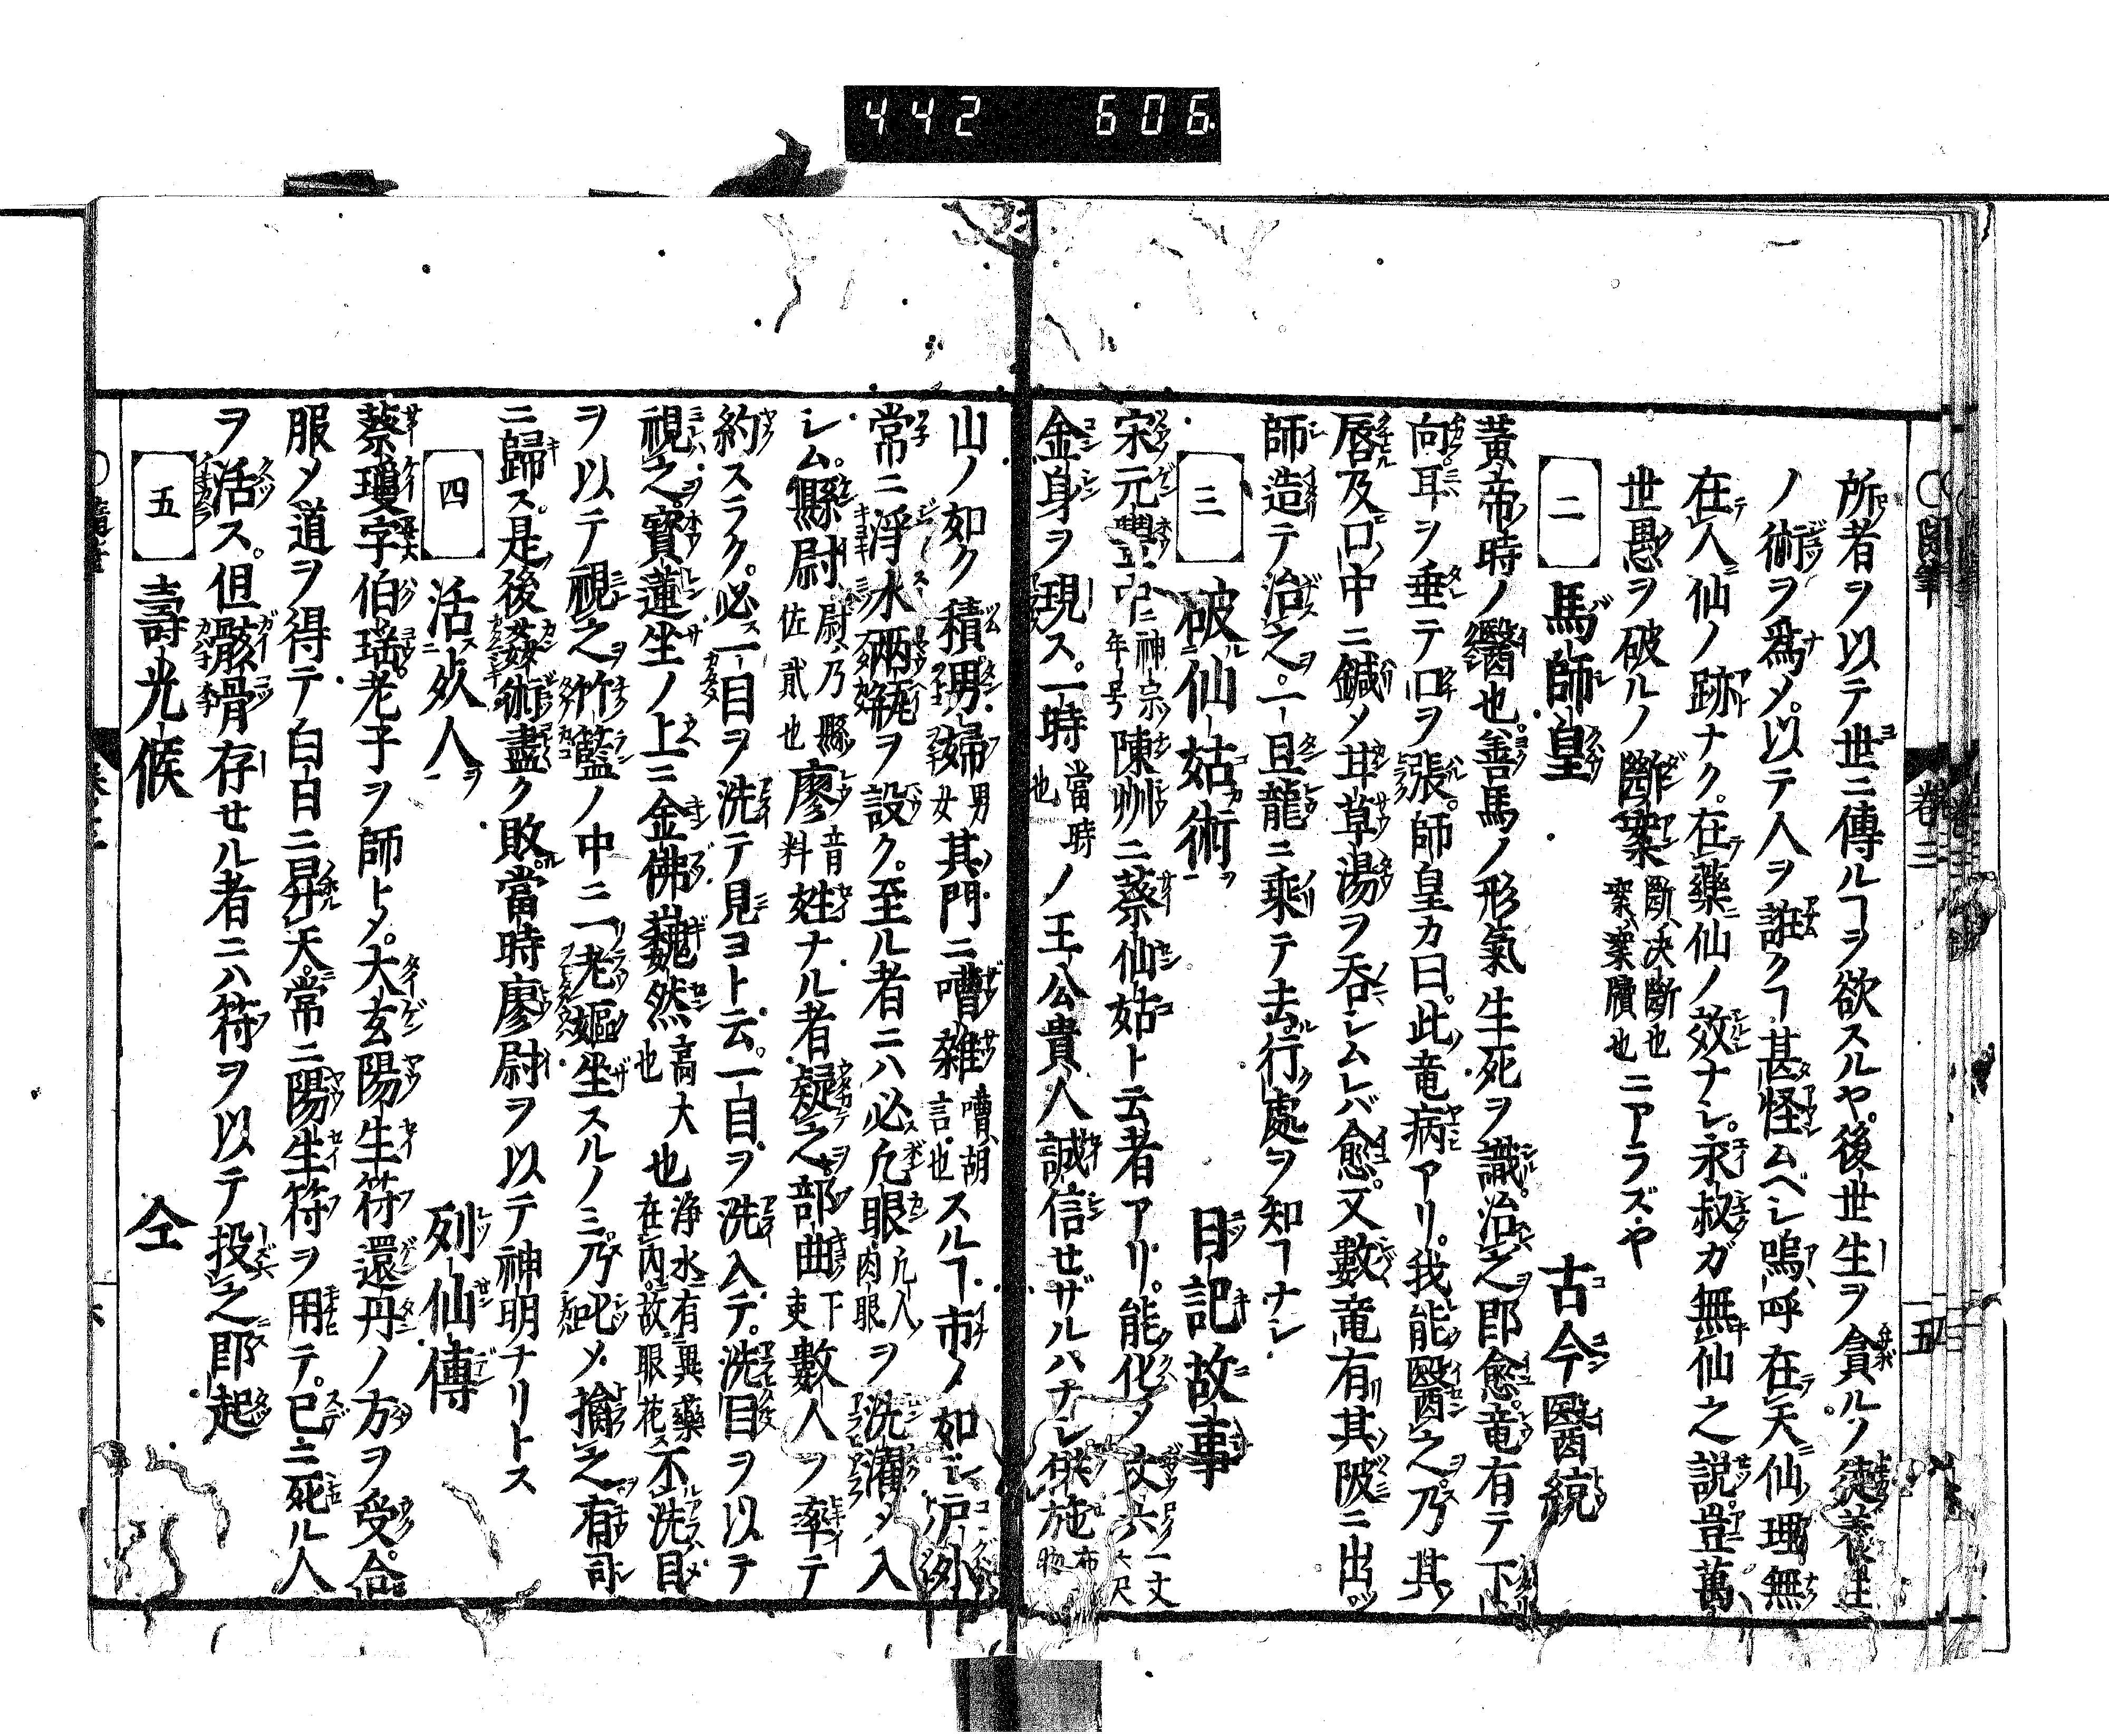 442 606
所者ヲ以テ世ニ傳ルヿヲ欲スルヤ後世生ヲ貪ルノ徒養生
ノ術ヲ爲メ以テ人ヲ誑クヿ甚怪ムベシ嗚呼在天仙理無
在人仙ノ跡ナク在藥仙ノ效ナシ永叔ガ無仙之説豈萬
世愚ヲ破ルノ斷案斷决断也案案牘也ニアラズヤ
二 馬師皇 古今醫統
黃帝時ノ醫也善馬ノ形氣生死ヲ識治之即愈竜有テ下
向耳ヲ垂テ口ヲ張師皇カ曰此竜病アリ我能醫之乃其
唇及口中ニ鍼メ甘草湯ヲ呑シムレバ愈又數竜有其陂ニ出
師造テ治之一旦龍ニ乗テ去行處ヲ知ヿナシ
三 破仙姑術 日記故事
宋元豐中神宗年号陳州ニ蔡仙姑ト云者アリ能化メ丈六一丈六尺
金身ヲ現ス一時當時也ノ王公貴人誠信セザルハナシ供施布物
山ノ如ク積男婦男女其門ニ嘈雑嘈胡言也スルヿ市ノ如シ戸外
常ニ淨水兩瓶ヲ設ク至ル者ニハ必凢眼凢人肉眼ヲ洗濯メ入
シム縣尉尉乃縣佐貳也廖音料姓ナル者疑之部曲下吏數人ヲ率テ
約スラク必一目ヲ洗テ見ヨト云一目ヲ洗入テ洗目ヲ以テ
視之寳蓮坐ノ上ニ金佛巍然高大也也浄水有異藥在内故眼花不洗目
ヲ以テ視之竹籃ノ中ニ一老嫗坐スルノミ乃叱メ擒之有司
ニ歸ス是後姦術盡ク敗當時廖尉ヲ以テ神明ナリトス
四 活死人 列仙傳
蔡瓊字伯瑶老子ヲ師トメ大玄陽生符還丹ノ方ヲ受合
服メ道ヲ得テ白日ニ昇天常ニ陽生符ヲ用テ已ニ死ル人
ヲ活ス但骸骨存セル者ニハ符ヲ以テ投之即起
五 壽光候 仝
卷三
五